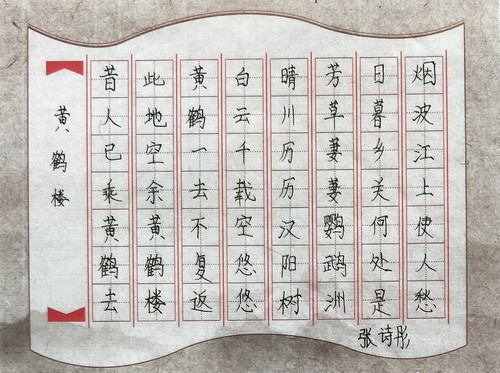 黄鹤楼
昔人已乘黄鹤去
此地空余黄鹤楼
黄鹤一去不复返
白云千载空悠悠
晴川历历汉阳树
芳草萋萋鹦鹉洲
日暮乡关何处是
烟波江上使人愁
张诗彤